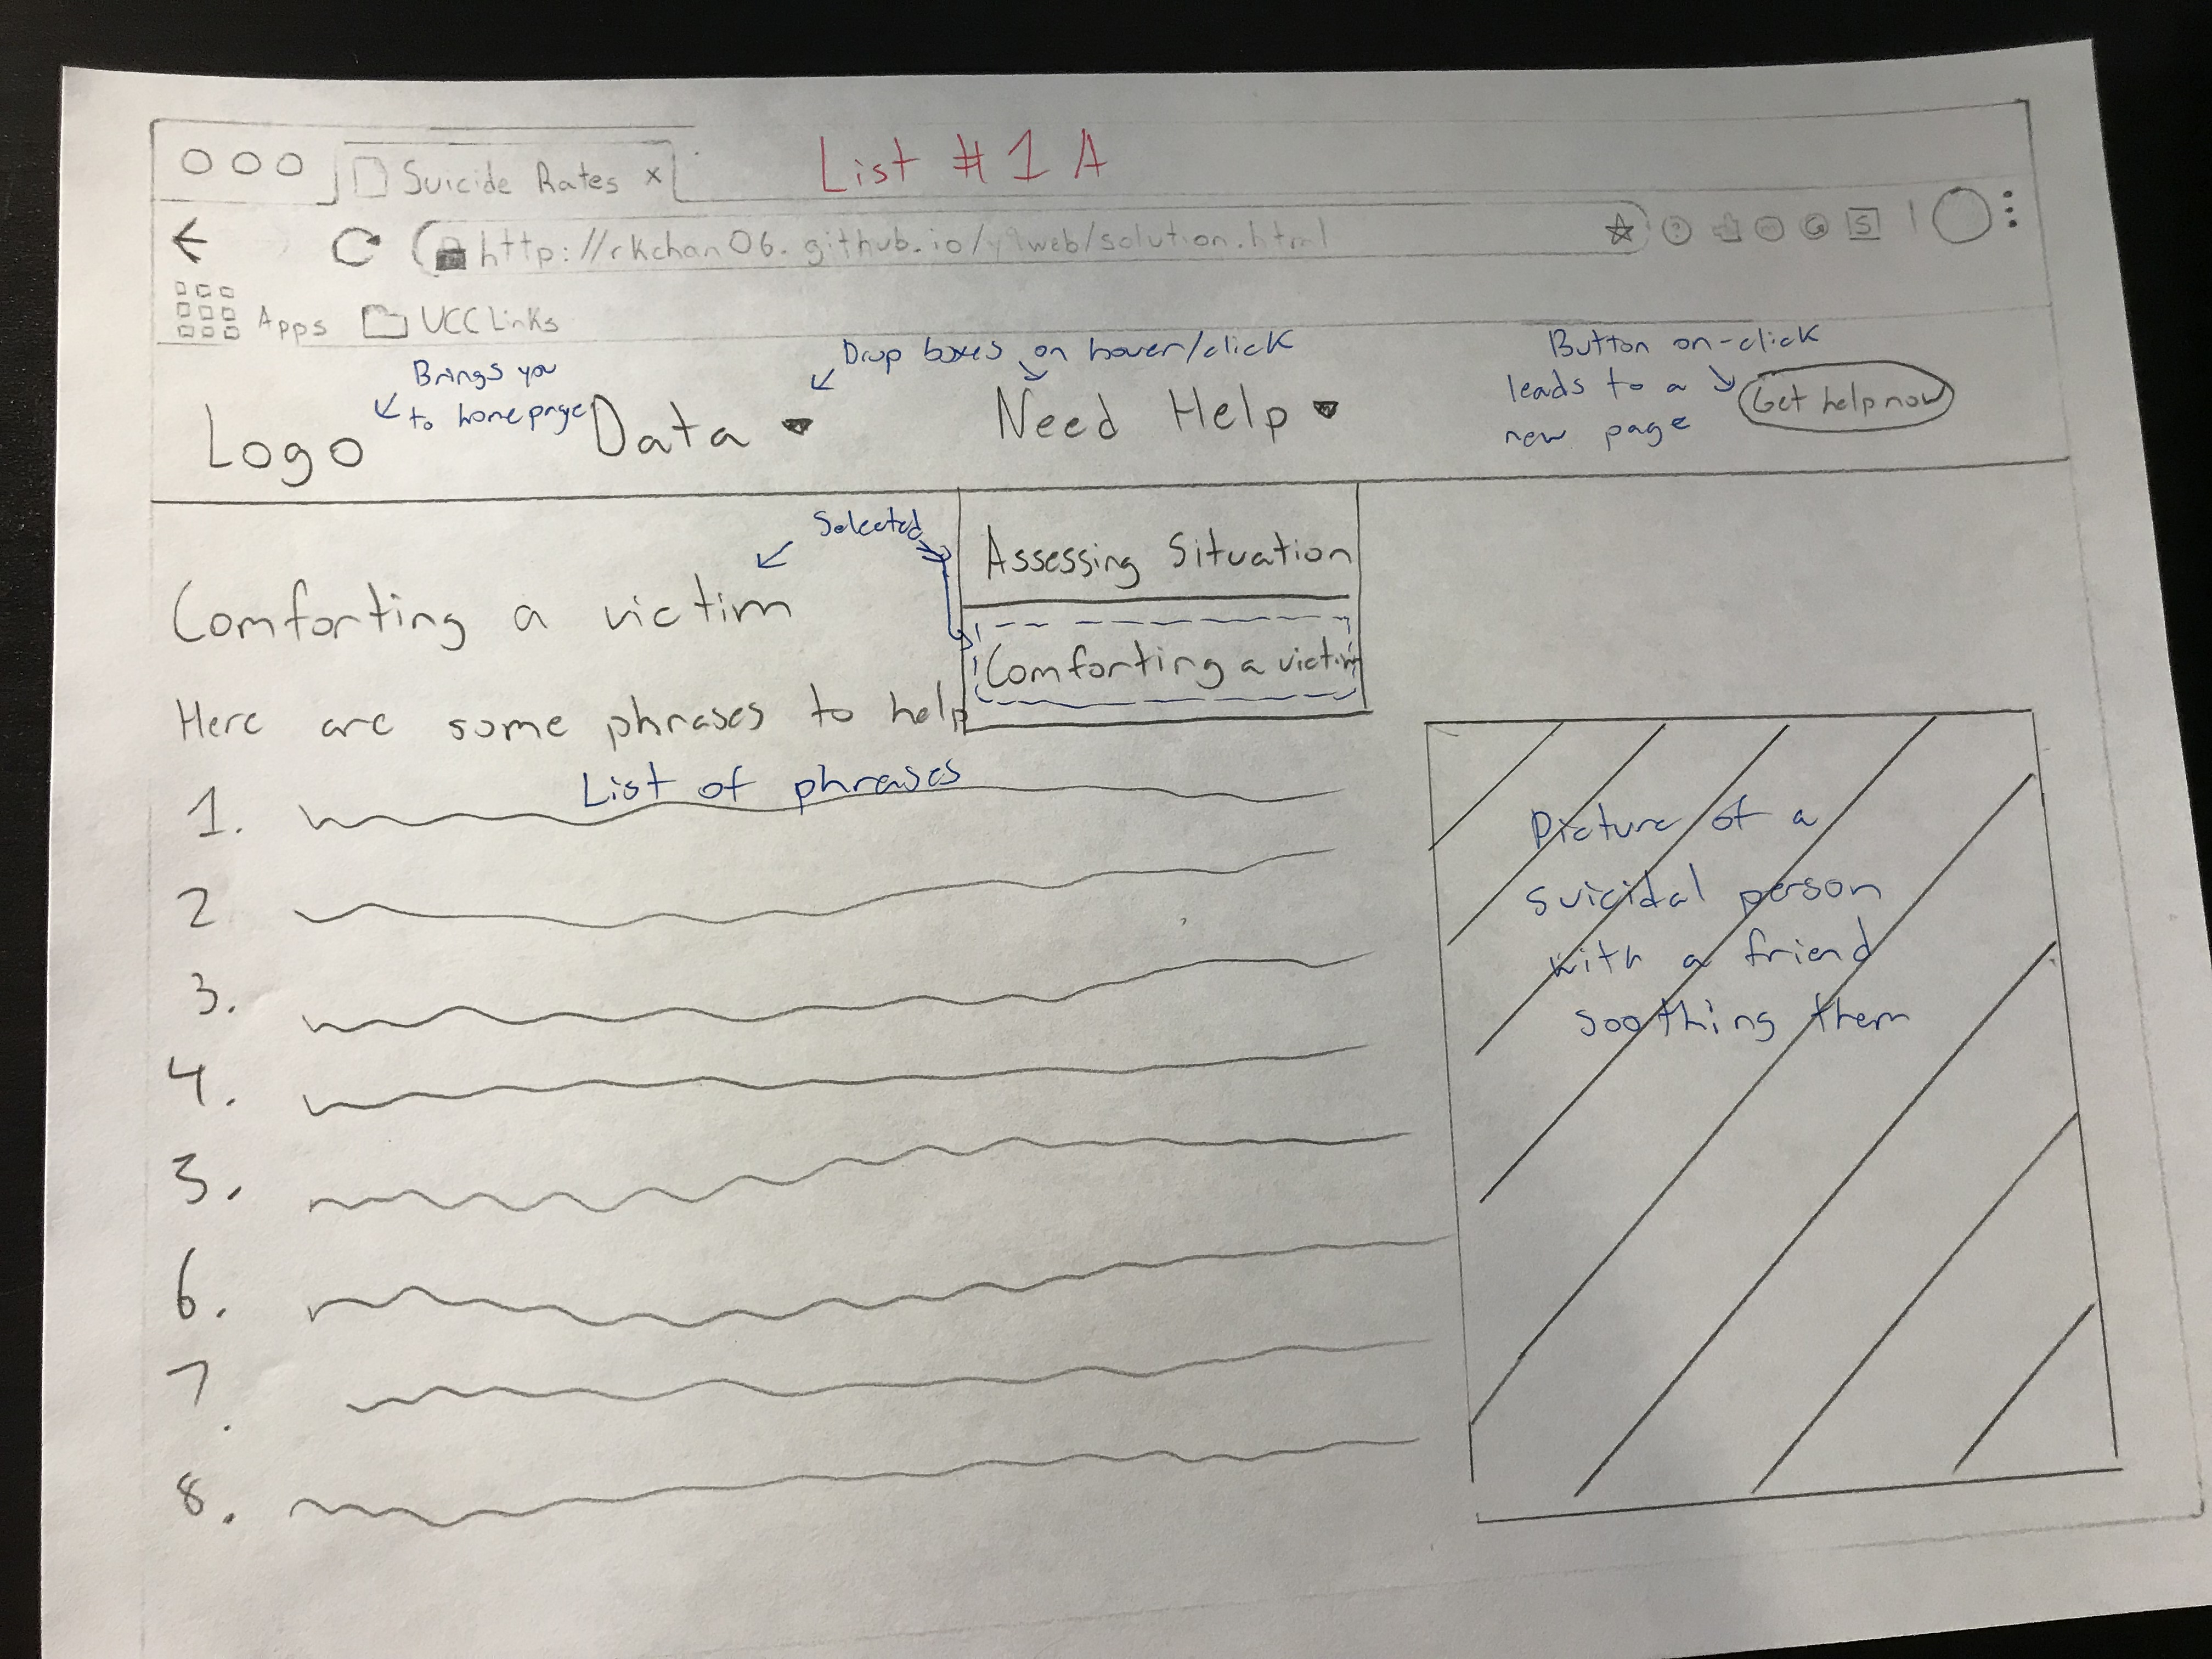 List #1 A
Suicide Rates x
http://rkchan06.github.io/y9web/solution.html
Apps UCC Links
Brings you
to homepage
Drop boxes on hover/click
Button on-click
leads to a
new page
Logo Data Need Help Get help now
Selected
Assessing Situation
Comforting a victim
Comforting a victim
Here are some phrases to help
List of phrases
1.
2
3.
4.
5.
6.
7.
8.
Picture of a
suicidal person
with a friend
soothing them